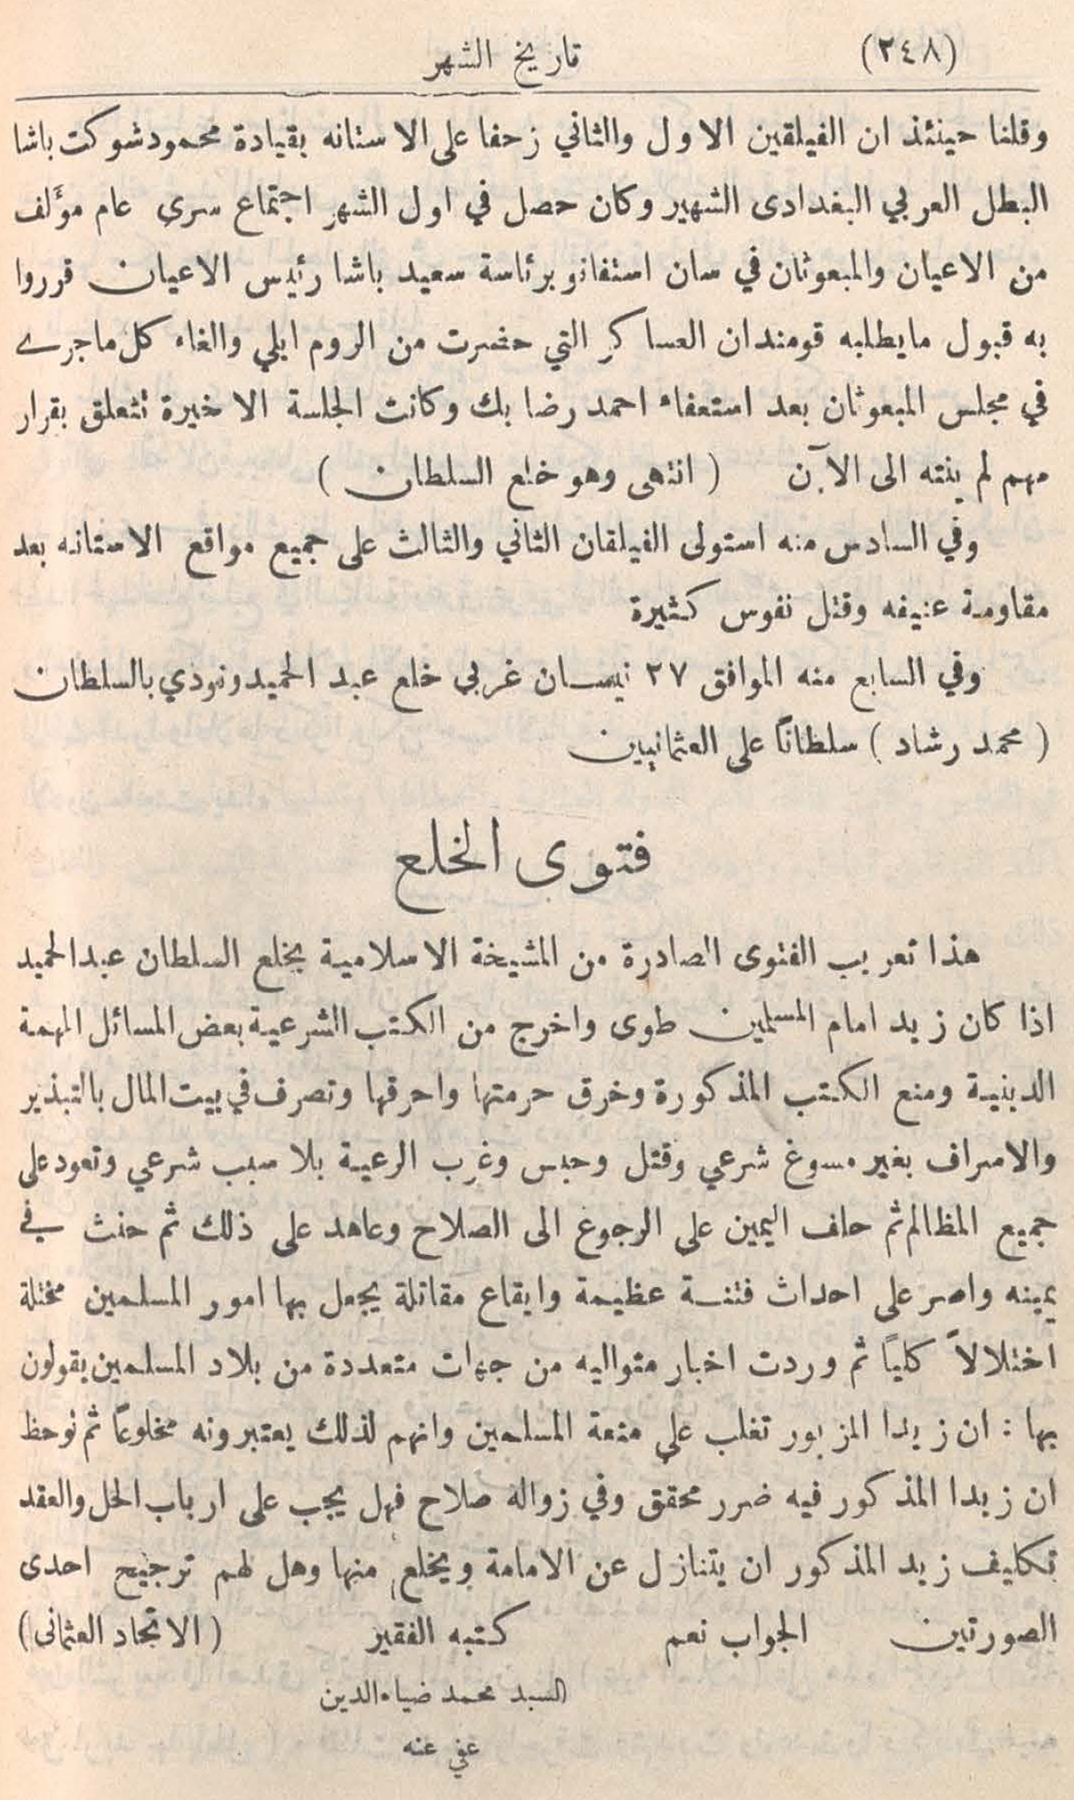 (٢٤٨) تاريخ الشهر
وقلنا حينئذ ان الفيلقين الاول والثاني زحفا على الاستانه بقيادة محمود شوكت باشا
البطل العربي البغدادى الشهير وكان حصل في اول الشهر اجتماع سري عام مؤلف
من الاعيان والمبعوثان في سان استفانو برئاسة سعيد باشا رئيس الاعيان قرروا
به قبول مايطلبه قومندان العساكر التي حضرت من الروم ايلي والغاء كل ماجرے
في مجلس المبعوثان بعد استعفاء احمد رضا بك وكانت الجلسة الاخيرة تتعلق بقرار
مهم لم ينته الى الآن ( انتهى وهو خلع السلطان )
وفي السادس منه استولى الفيلقان الثاني والثالث على جميع مواقع الاستانه بعد
مقاومة عنيفه وقتل نفوس كثيرة
وفي السابع منه الموافق ٢٧ نيسان غربي خلع عبد الحميد ونودي بالسلطان
( محمد رشاد ) سلطانًا على العثمانيين
فتوى الخلع
هذا تعريب الفتوى الصادرة من المشيخة الاسلامية بخلع السلطان عبدالحميد
اذا كان زيد امام المسلمين طوى واخرج من الكتب الشرعية بعض المسائل المهمة
الدينية ومنع الكتب المذكورة وخرق حرمتها واحرقها وتصرف في بيت المال بالتبذير
والاسراف بغير مسوغ شرعي وقتل وحبس وغرب الرعية بلا سبب شرعي وتعود على
جميع المظالم ثم حلف اليمين على الرجوع الى الصلاح وعاهد على ذلك ثم حنث في
يمينه واصر على احداث فتنة عظيمة وايقاع مقاتلة يجعل بها امور المسلمين مختلة
اختلالاً كليًا ثم وردت اخبار متواليه من جهات متعددة من بلاد المسلمين يقولون
بها : ان زيدا المزبور تغلب على منعة المسلمين وانهم لذلك يعتبرونه مخلوعًا ثم لوحظ
ان زيدا المذكور فيه ضرر محقق وفي زواله صلاح فهل يجب على ارباب الحل والعقد
تكليف زيد المذكور ان يتنازل عن الامامة ويخلع منها وهل لهم ترجيح احدى
الصورتين الجواب نعم كتبه الفقير (الاتحاد العثمانى)
السيد محمد ضياءالدين
عفي عنه